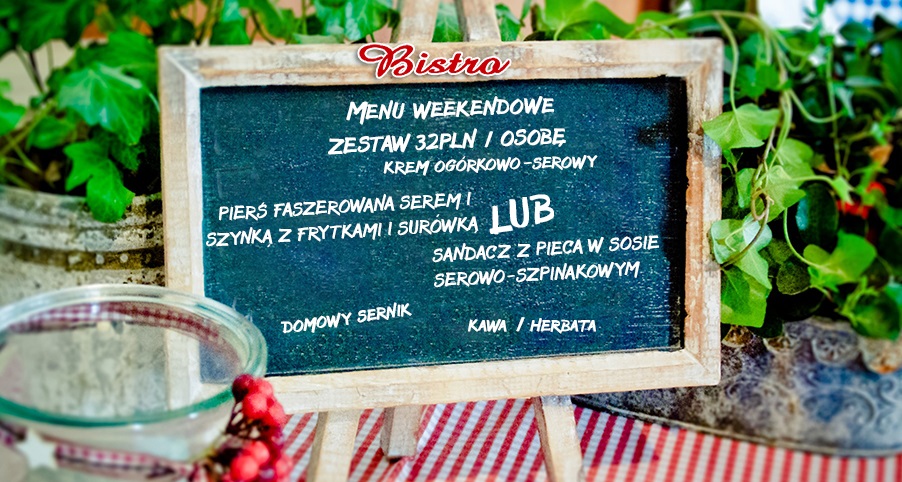 Bistro
MENU WEEKENDOWE
ZESTAW 32PLN / OSOBĘ
KREM OGÓRKOWO-SEROWY
PIERŚ FASZEROWANA SEREM I
SZYNKĄ Z FRYTKAMI I SURÓWKĄ
LUB
SANDACZ Z PIECA W SOSIE
SEROWO-SZPINAKOWYM
DOMOWY SERNIK
KAWA / HERBATA